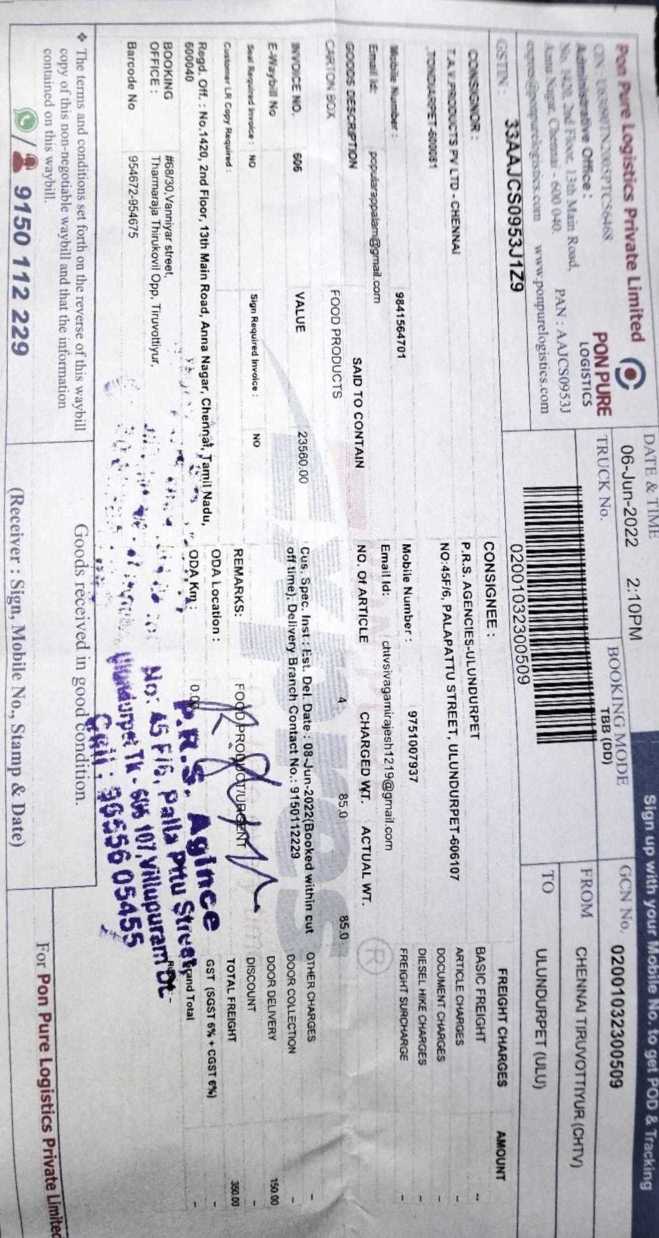 Sign up with your Mobile No. to get POD & Tracking
Pon Pure Logistics Private Limited
Administrative Office :
No. 1420, 2nd Floor, 13th Main Road,
Anna Nagar, Chennai - 600 040.
PAN : AAJCS0953J
express@ponpurelogistics.com www.ponpurelogistics.com
PON PURE
LOGISTICS
GSTIN : 33AAJCS0953J1Z9
DATE & TIME
06-Jun-2022 2:10PM
TRUCK No.
BOOKING MODE
TBB (DD)
GCN No. 02001032300509
FROM CHENNAI TIRUVOTTIYUR (CHTV)
TO ULUNDURPET (ULU)
02001032300509
CONSIGNOR :
T.A.V.PRODUCTS PV LTD - CHENNAI
,TONDIARPET-600081
Mobile Number : 9841564701
Email Id: popularappalam@gmail.com
CONSIGNEE :
P.R.S. AGENCIES-ULUNDURPET
NO:45F/6, PALAPATTU STREET, ULUNDURPET-606107
Mobile Number : 9751007937
Email Id: chtvsivagamirajesh1219@gmail.com
GOODS DESCRIPTION SAID TO CONTAIN NO. OF ARTICLE CHARGED WT. ACTUAL WT.
CARTON BOX FOOD PRODUCTS 4 85.0 85.0
INVOICE NO. 606 VALUE 23560.00
E-Waybill No
Cus. Spec. Inst : Est. Del. Date : 08-Jun-2022(Booked within cut
off time), Delivery Branch Contact No.: 9150112229
Seal Required Invoice : NO Sign Required Invoice : NO
REMARKS: FOOD PRODUCT/URGENT
Customer LR Copy Required :
ODA Location :
ODA Km : 0.0
Regd. Off. : No.1420, 2nd Floor, 13th Main Road, Anna Nagar, Chennai, Tamil Nadu,
600040
BOOKING
OFFICE : #68/30,Vanniyar street,
Tharmaraja Thirukovil Opp, Tiruvottiyur,
Barcode No 954672-954675
FREIGHT CHARGES AMOUNT
BASIC FREIGHT --
ARTICLE CHARGES -
DOCUMENT CHARGES -
DIESEL HIKE CHARGES -
FREIGHT SURCHARGE -
OTHER CHARGES -
DOOR COLLECTION -
DOOR DELIVERY 150.00
DISCOUNT -
TOTAL FREIGHT 350.00
GST (SGST 6% + CGST 6%) -
Grand Total -
P.R.S. Agince
No: 45 F/6, Palla Pttu Street,
Ulundurpet Tk - 606 107 Villupuram Dt -
Cell : 96556 05455
❖ The terms and conditions set forth on the reverse of this waybill
copy of this non-negotiable waybill and that the information
contained on this waybill.
9150 112 229
Goods received in good condition.
(Receiver : Sign, Mobile No., Stamp & Date)
For Pon Pure Logistics Private Limited